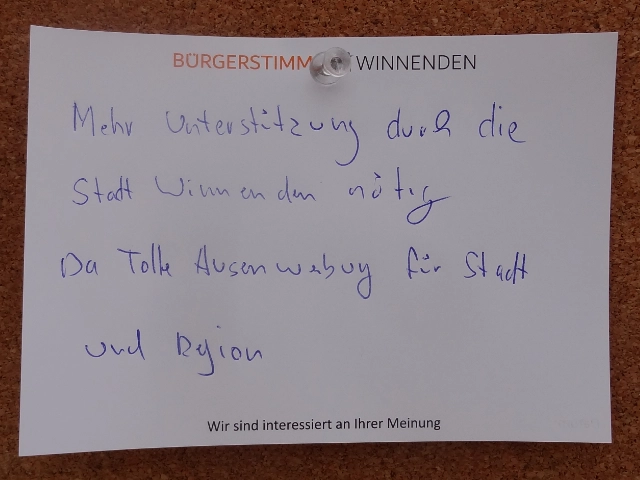 BÜRGERSTIMM WINNENDEN
Mehr Unterstützung durch die
Stadt Winnenden nötig
Da Tolle Ausenwerbung für Stadt
und Region
Wir sind interessiert an Ihrer Meinung